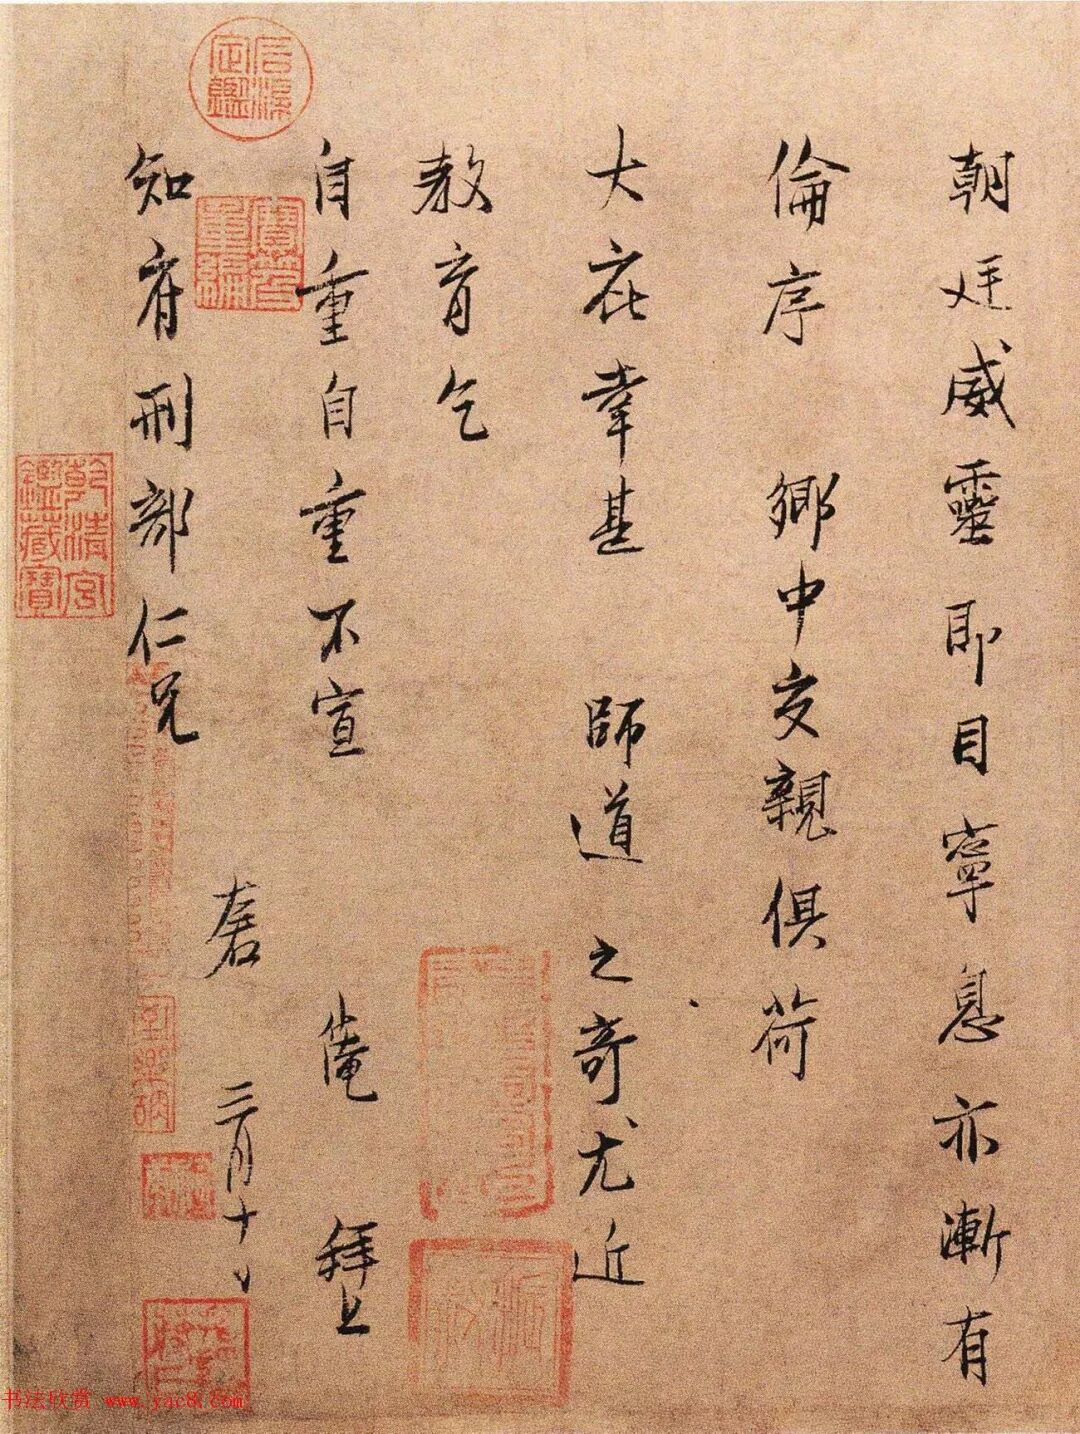 朝廷威靈即目寧息亦漸有
倫序 鄉中交親俱荷
大庇幸甚 師道之奇尤近
教育乞
自重自重不宣 俺拜上
知府刑部仁兄
三月十
石渠定鑑
寶笈重編
乾清宮鑑藏寶
书法欣赏 www.yac8.com